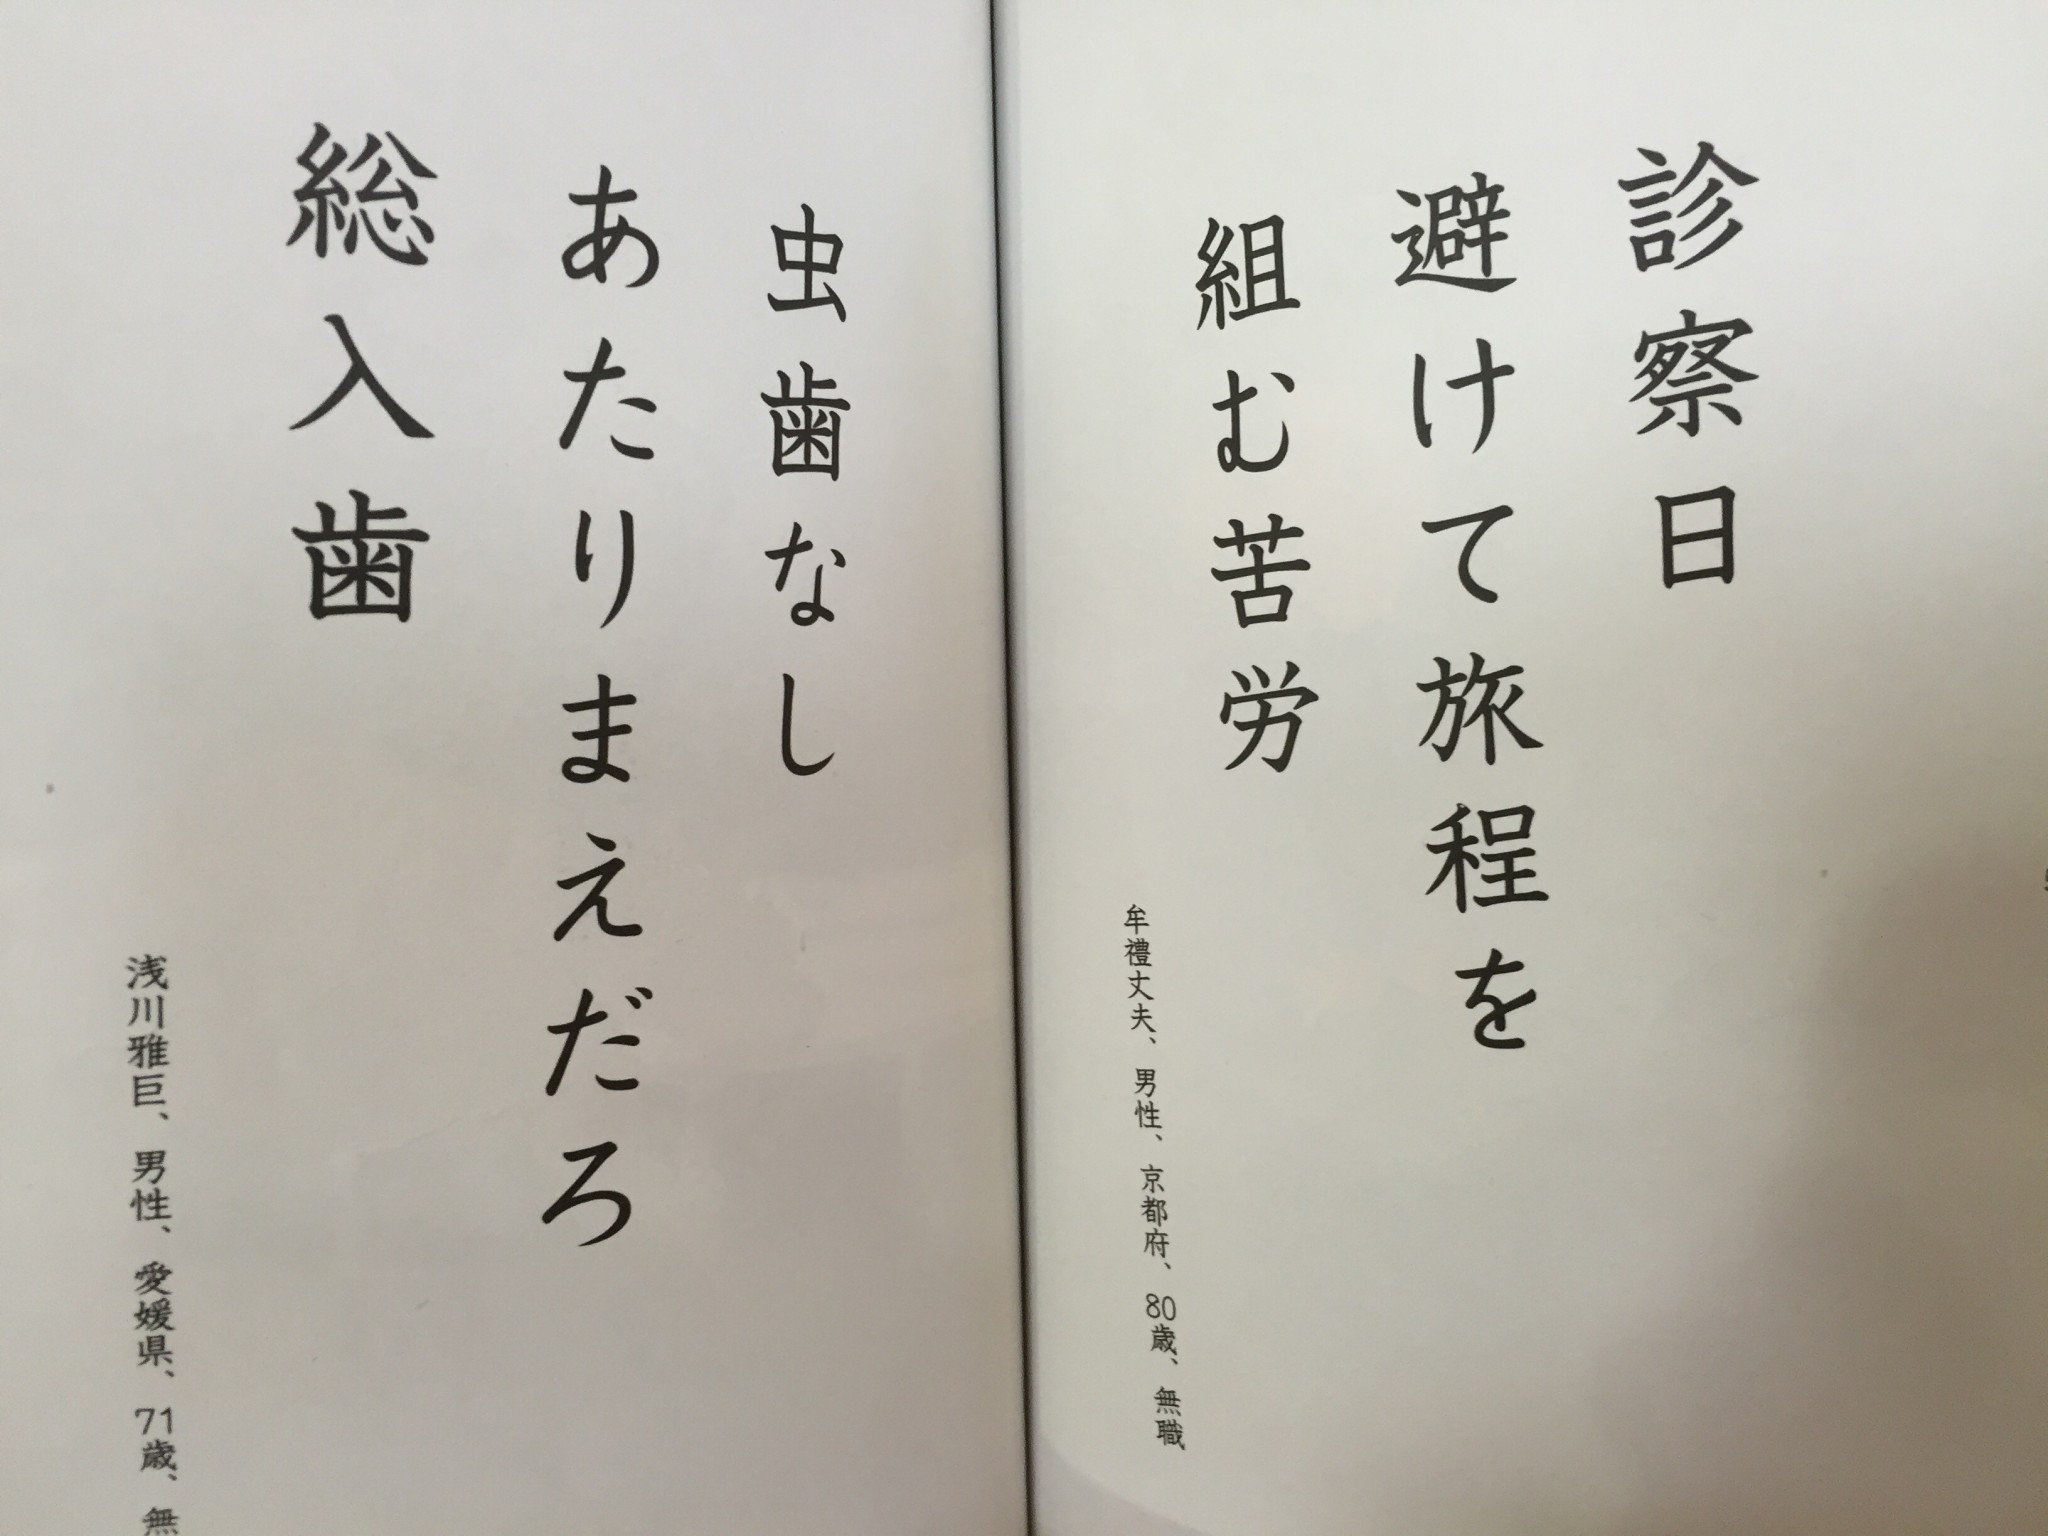 診察日
避けて旅程を
組む苦労
牟禮丈夫、男性、京都府、80歳、無職
虫歯なし
あたりまえだろ
総入歯
浅川雅巨、男性、愛媛県、71歳、無